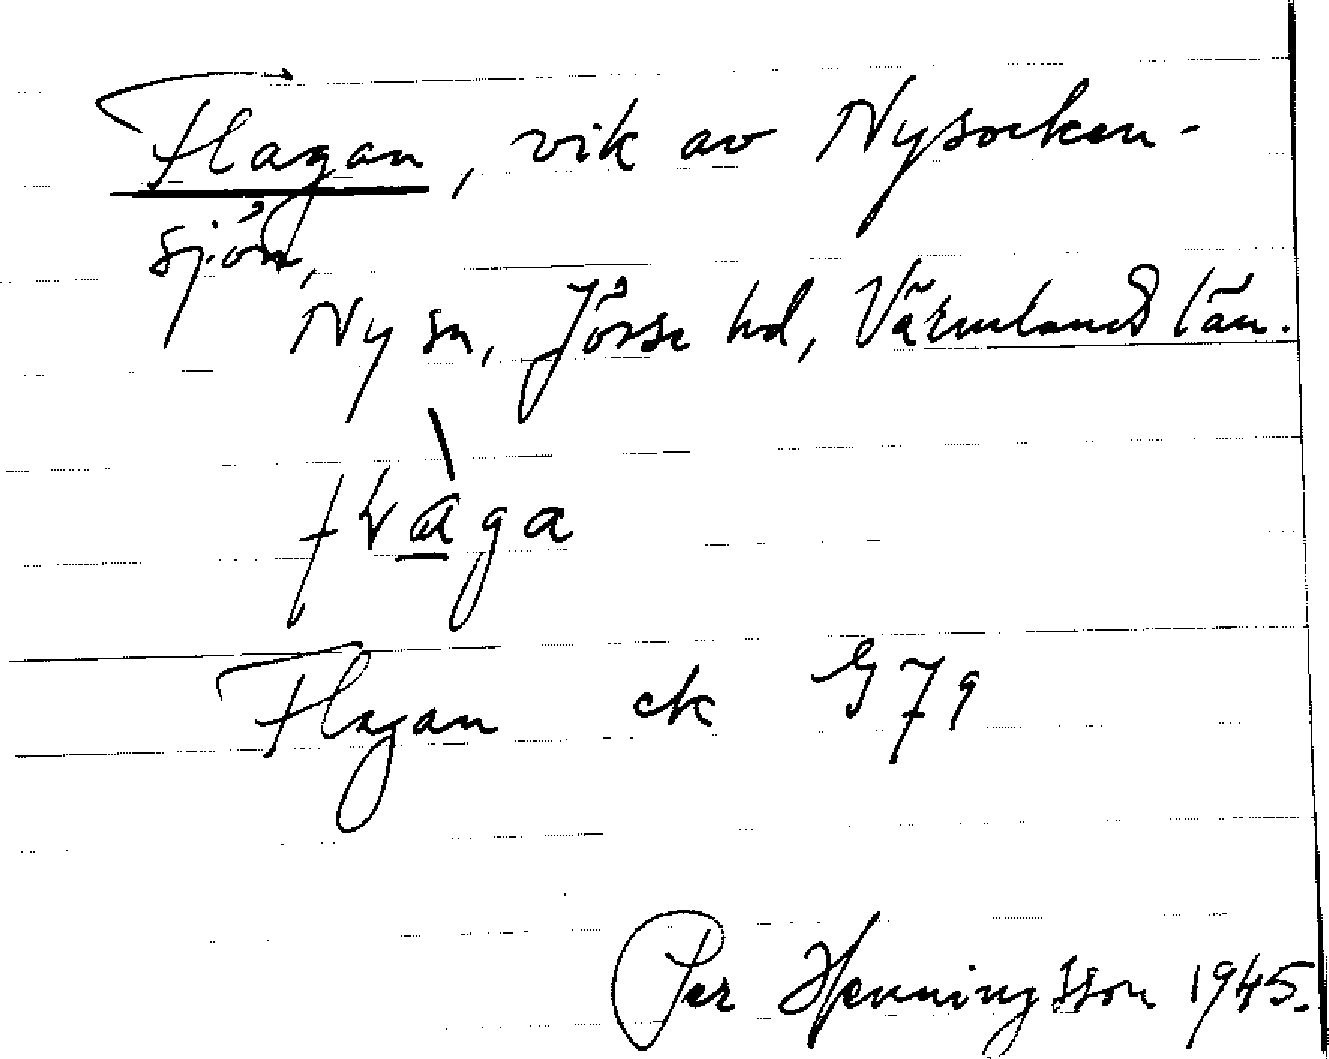 Flagan, vik av Nysocken-
sjön,
Ny sn, Jösse hd, Värmlands län.
Flagan ek 579
Per Henningsson 1945.